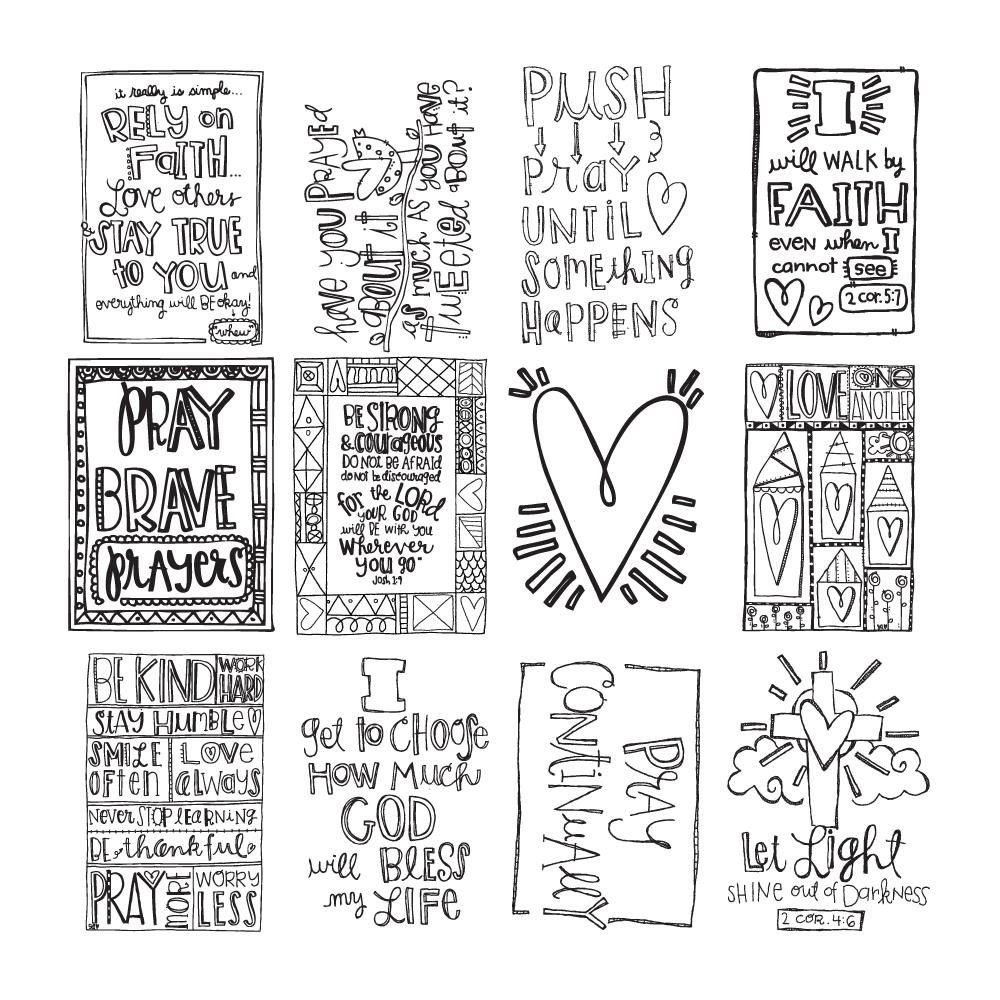 it really is simple...
RELY on
FAITH...
Love others
& STAY TRUE
to YOU and
everything will BE okay!
"whew"
have you PRAYED
ABOUT it
as much AS you HAVE
tweeted ABOUT it?
PUSH
Pray
UNTIL
SOMEtHING
HaPPENS
I
will WALK by
FAITH
even when I
cannot see
2 cor. 5:7
PRAY
BRAVE
PRAYERS
BE STRONG
& COURAGEOUS
DO NOT BE AFRAID
do not be discouraged
for the LORD
YOUR GOD
will BE with you
Wherever
you go"
Josh 1:9
LOVE ONE
ANOTHER
BE KIND WORK
HARD
STAY HUMBLE
SMILE LOVE
OFTEN always
NEVER STOP LEARNING
BE thankful
PRAY MORE WORRY
LESS
I
get to CHOOSE
HOW MUCH
GOD
will BLESS
my LIFE
PRAY
CONTINUALLY
Let Light
SHINE out of DarkNESS
2 COR. 4:6